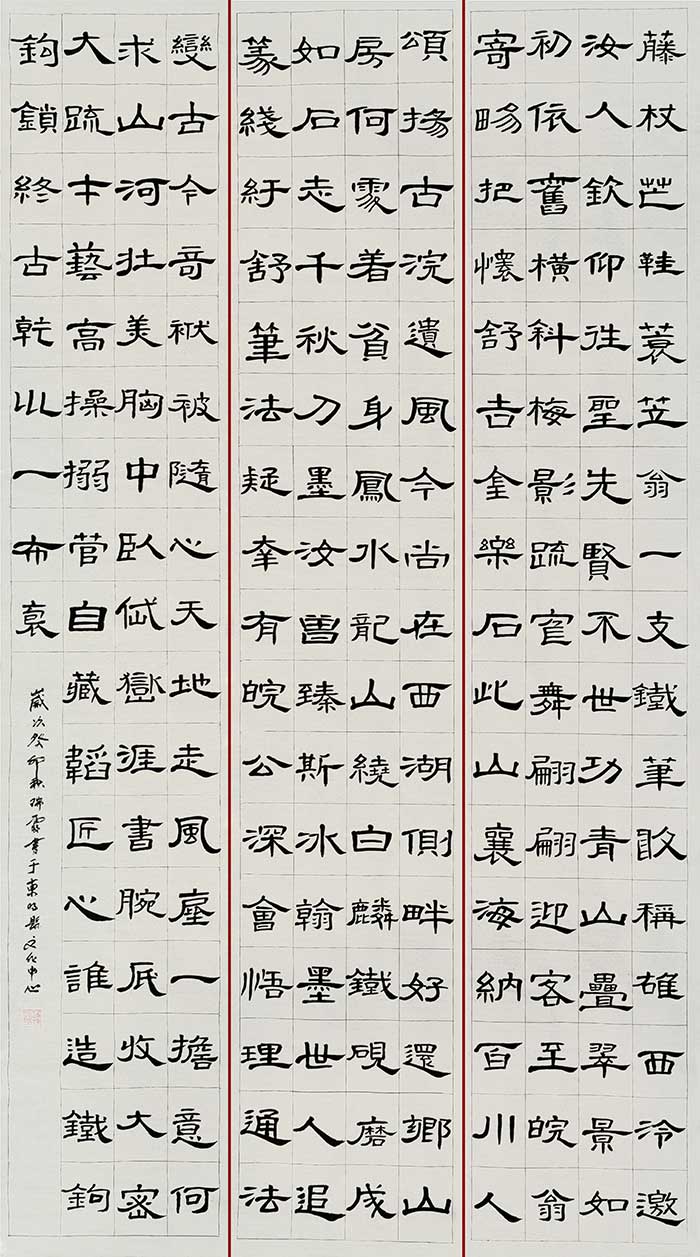 藤杖芒鞋蓑笠翁一支鐵筆敢稱雄西泠邀
汝人欽仰往聖先賢不世功青山疊翠景如
初依舊橫斜梅影疏窗舞翩翩迎客至皖翁
寄畅把懷舒吉金樂石此山襄海納百川人
頌揚古浣遺風今尚在西湖側畔好還鄉山
房何處着貧身鳳水龍山繞白麟鐵硯磨成
如石志千秋刀墨汝曽臻斯冰翰墨世人追
篆綫紆舒筆法疑奎有皖公深會悟理通法
變古今奇袱被隨心天地走風塵一擔意何
求山河壯美胸中臥嶽涯書腕底收大密
大疏本藝高操搦管自藏韜匠心誰造鐵鉤
鉤鎖終古乾以一布哀
歲次癸卯秋書于東明縣文化中心